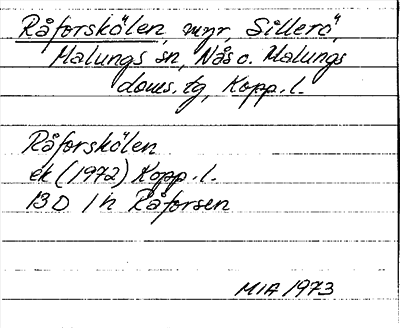 Råforskölen, myr, Sillerö,
Malungs sn, Nås o. Malungs
doms. tg, Kopp. l.
Råforskölen
ek (1972) Kopp. l.
13 D 1 h Råforsen
MIA 1973